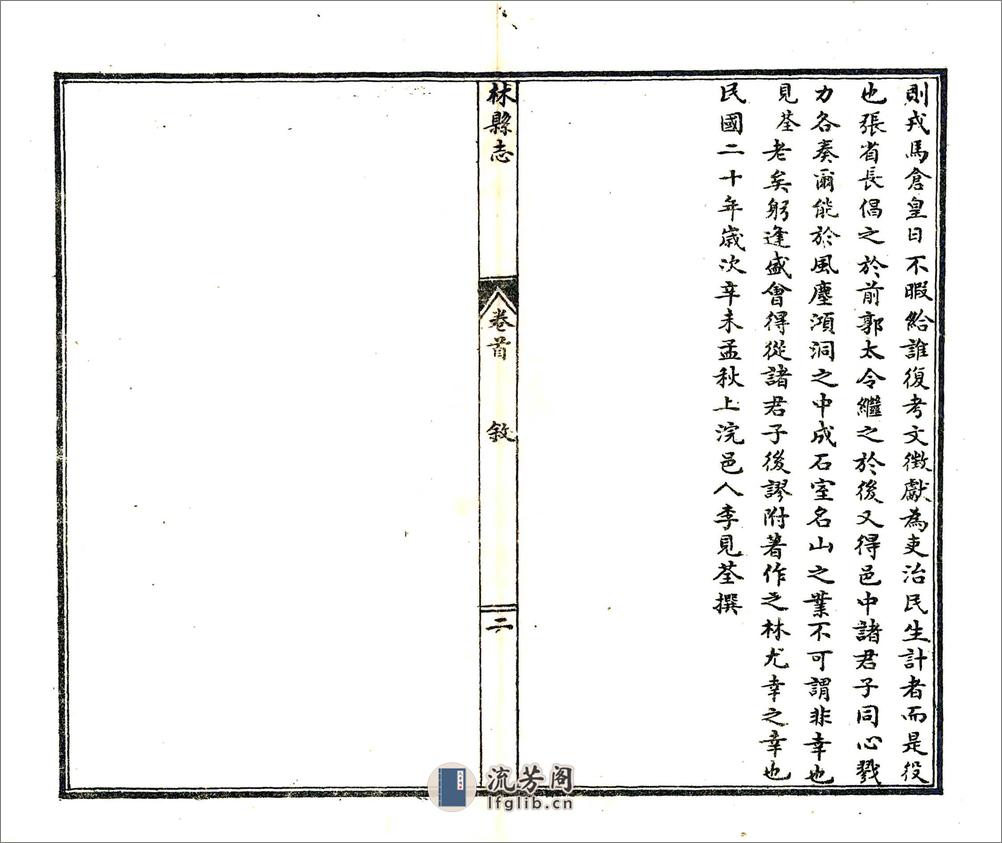 則戎馬倉皇日不暇給誰復考文徵獻為吏治民生計者而是役
也張省長倡之於前郭太令繼之於後又得邑中諸君子同心戮
力各奏爾能於風塵澒洞之中成石室名山之業不可謂非幸也
見荃老矣躬逢盛會得從諸君子後謬附著作之林尤幸之幸也
民國二十年歲次辛未孟秋上浣邑人李見荃撰
林縣志
卷首
敘
二
流芳阁
lfglib.cn